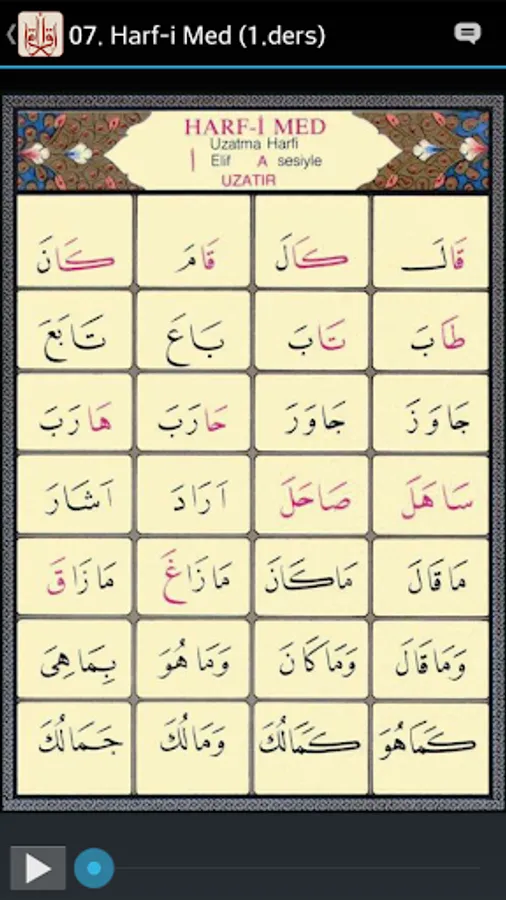 07. Harf-i Med (1.ders)
HARF-İ MED
Uzatma Harfi
أ Elif A sesiyle
UZATIR
قَالَ كَالَ قَامَ كَانَ
طَابَ تَابَ بَاعَ تَابَعَ
جَاوَزَ جَاوَرَ حَارَبَ هَارَبَ
سَاهَلَ صَاحَلَ اَرَادَ اَشَارَ
مَاقَالَ مَاكَانَ مَازَاغَ مَازَاقَ
وَمَاقَالَ وَمَاكَانَ وَمَاهُوَ بِمَاهِىَ
كَمَاهُوَ كَمَالُكَ وَمَالُكَ جَمَالُكَ